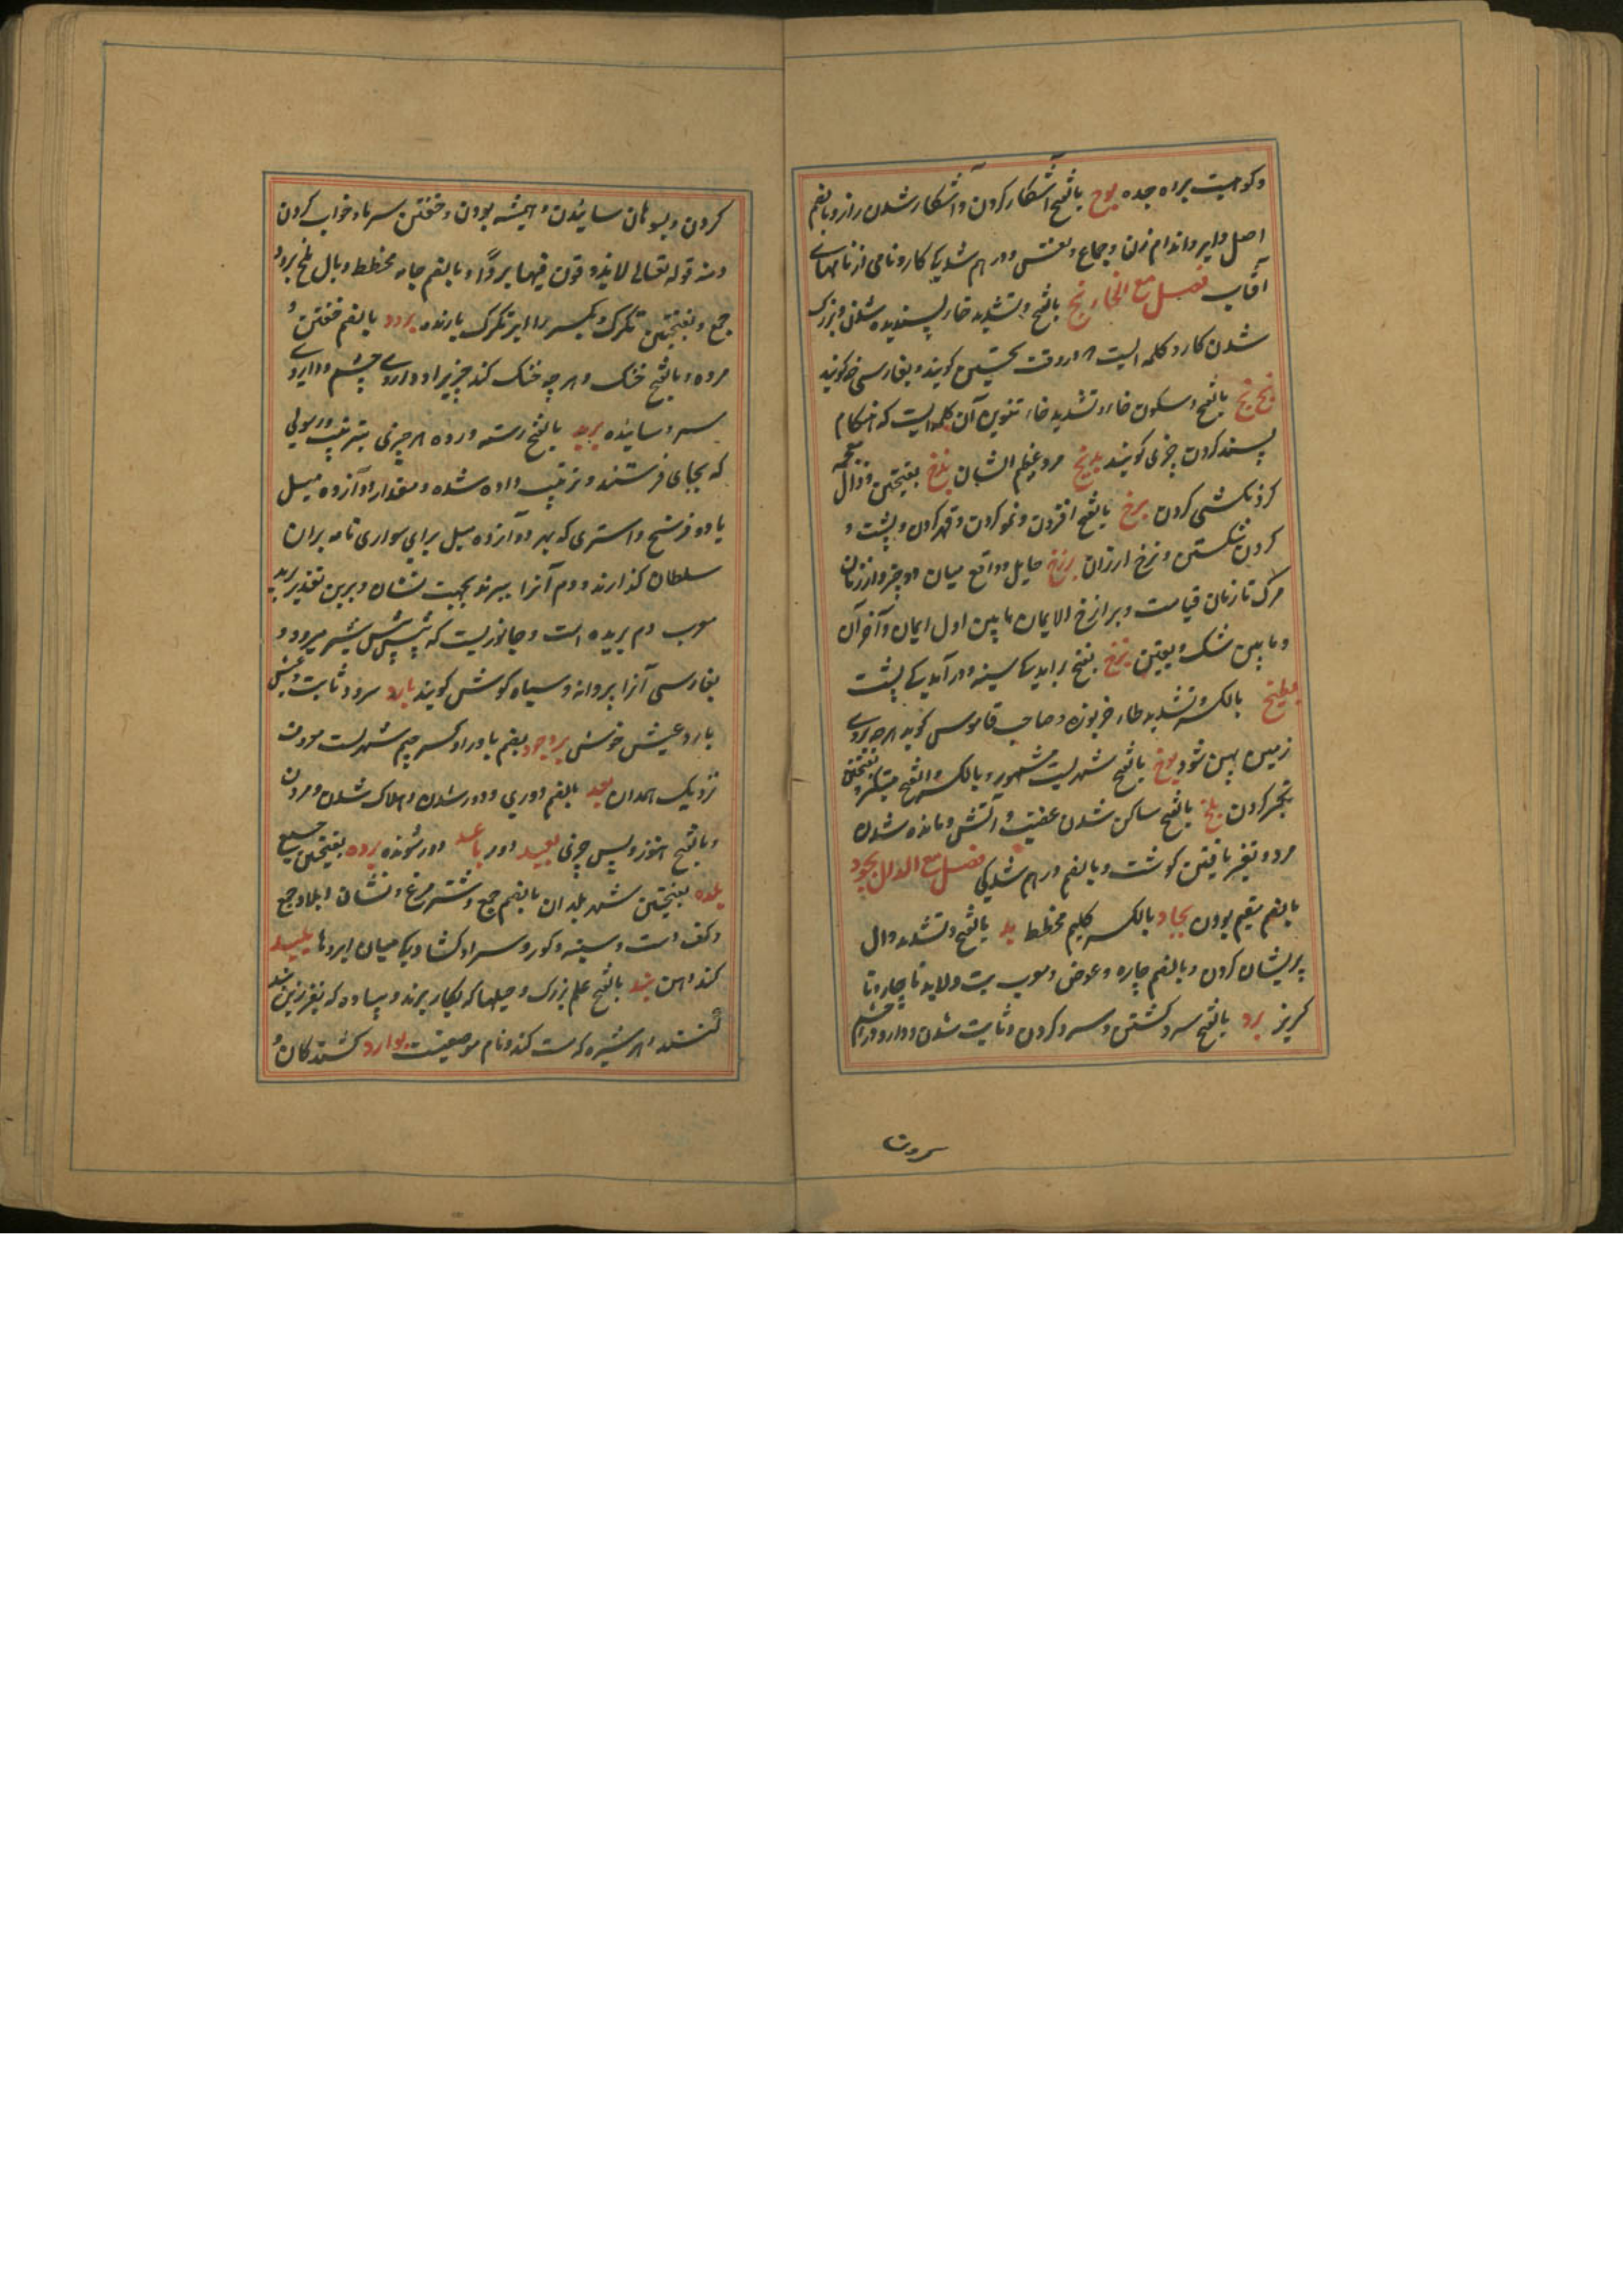 وکوهیت براه جده بوح بالفتح آشکار کردن وآشکار شدن راز وبالضم
اصل وایر واندام زن وجماع ونفس ودرهم شدن کار ونامی از نامهای
آفتاب فصل مع الخاء بخ بالفتح وتشدید خا پسندیده شدن وبزرک
شدن کار وکلمه ایست که در وقت تحسین کویند وبفارسی خه کویند
بخ بخ بالفتح وسکون خاء وتشدید خاء وتنوین آن کلمه ایست که هنکام
پسند کردن چیزی کویند بذیخ مرد عظیم الشان بذخ بفتحتین وذال معجمه
کردنکشی کردن برخ بالفتح افزون ونمو کردن وقهر کردن وپشت و
کردن شکستن ونرخ ارزان برزخ حایل وواقع میان دو چیز واز زمان
مرک تا زمان قیامت وبرازخ الایمان مابین اول ایمان وآخر آن
وما بین شک ویقین بزخ بفتح برآمدگی سینه ودرآمدگی پشت
بطیخ بالکسر وتشدید طاء خربوزه وصاحب قاموس کوید هرچه بروی
زمین پهن شود بلخ بالفتح شهریست مشهور وبالکسر والفتح متکبر وبفتحتین
تکبر کردن بوخ بالفتح ساکن شدن غضب وآتش ومانده شدن
مرد وتغیر یافتن کوشت وبالضم درهم شدکی فصل مع الدال بجود
بالضم مقیم بودن بجاد بالکسر کلیم مخطط بد بالفتح وتشدید دال
پریشان کردن وبالضم چاره وعوض ومعرب بت ولابد ناچار ونا
کریز برد بالفتح سرد کشتن وسرد کردن وثابت شدن ودارو در چشم
سرون
کردن وبسوهان سائیدن وهمیشه بودن وخفتن سرما وخواب کردن
ومنه قوله تعالی لا یذوقون فیها بردًا وبالضم جامه مخطط وبال ملخ برود
جمع وبفتحتین تکرک وبکسر را ابر تکرک بارنده برود بالضم خفتن و
مردن وبالفتح خنک وهرچه خنک کند چیزیرا وداروی چشم وداروی
سرد سائیده برید بالفتح رسته ورده هر چیزی بترتیب ورسولی
که بجای فرستند وترتیب داده شده ومقدار دوازده میل
یا دو فرسخ واستری که بهر دوازده میل برای سواری نامه بران
سلطان کذارند ودم آنرا ببرند بجهت نشان وبرین تقدیر برید
معرب دم بریده است وجانوریست که پیش پیش شیر میرود و
بفارسی آنرا پروانه وسیاه کوش کویند بارد سرد وثابت وعیش
بارد عیش خوش بروجرد بضم با ورا وکسر جیم شهریست معروف
نزدیک همدان بعد بالضم دوری ودور شدن وهلاک شدن ومردن
وبالفتح هنوز وپس چیزی بعید دور باعد دور شونده برده بفتحتین
بلده بفتحتین شهر بلدان بالضم جمع وشتر مرغ ونشان ابلاد جمع
وکف دست وسینه وکور وسرا وکشادکی میان ابروها بلید
کند ذهن بند بالفتح علم بزرک وحیلها که بکار برند وپیاده که بفرزین بند
کنند وهر شیره که مست کند ونام موضعیست بوارد کشندکان و